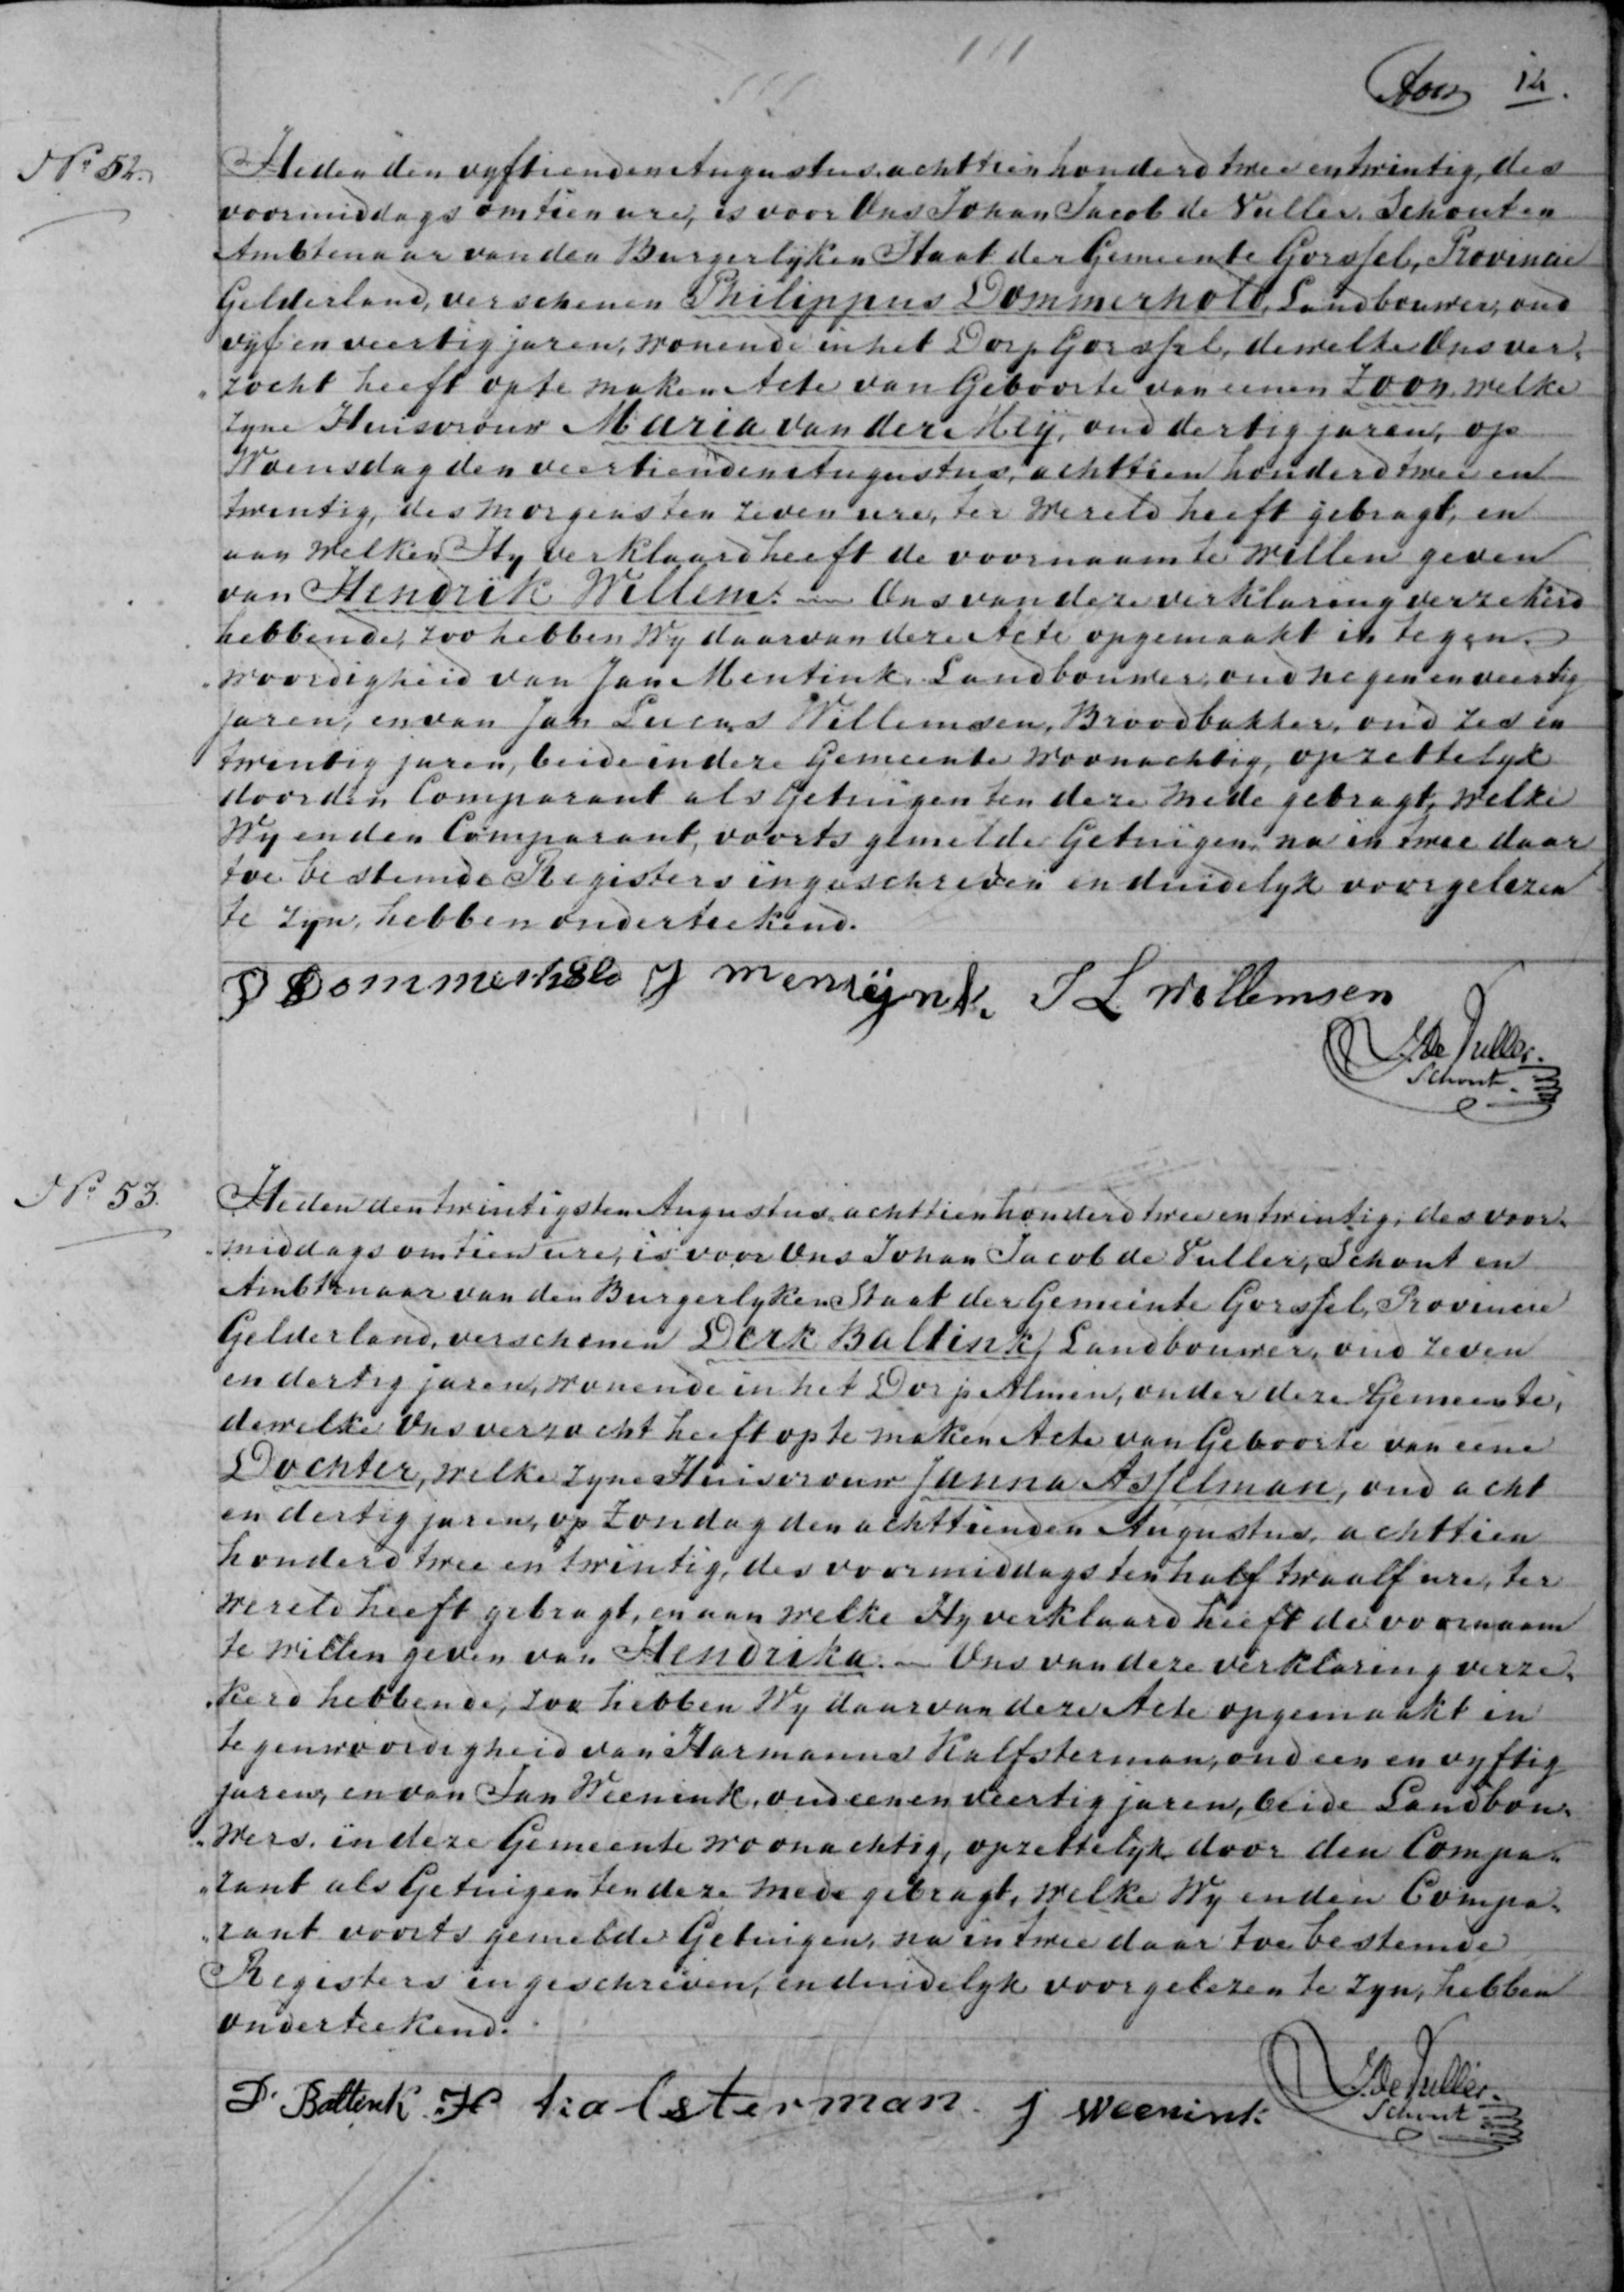 14.
N° 52.
Heden den vyftienden Augustus achttien honderd twee en twintig, des
voormiddags om tien ure, is voor Ons Johan Jacob de Vuller, Schout en
Ambtenaar van den Burgerlyken Staat der Gemeente Gorssel, Provincie
Gelderland, verschenen Philippus Dommerhold, Landbouwer, oud
vyf en veertig jaren, wonende in het Dorp Gorssel, dewelke Ons ver„
„zocht heeft op te maken Acte van Geboorte van eenen Zoon, welke
zyne Huisvrouw Maria van der Meÿ, oud dertig jaren, op
Woensdag den veertienden Augustus, achttien honderd twee en
twintig, des morgens ten zeven ure, ter wereld heeft gebragt, en
aan welken Hy verklaard heeft de voornaam te willen geven
van Hendrik Willem. — Ons van deze verklaring verzekerd
hebbende, zoo hebben Wy daarvan deze Acte opgemaakt in tegen„
„woordigheid van Jan Mentink, Landbouwer, oud negen en veertig
jaren, en van Jan Lucas Willemsen, Broodbakker, oud zes en
twintig jaren, beide in deze Gemeente woonachtig, opzettelyk
door den Comparant als Getuigen ten deze mede gebragt, welke
Wy en den Comparant, voorts gemelde Getuigen, na in twee daar
toe bestemde Registers ingeschreven en duidelyk voorgelezen
te zyn, hebben onderteekend.
P Dommerhold J menÿnk. J L Willemsen
JJDe Vuller.
Schout.
N° 53.
Heden den twintigsten Augustus, achttien honderd twee en twintig, des voor„
„middags om tien ure, is voor Ons Johan Jacob de Vuller, Schout en
Ambtenaar van den Burgerlyken Staat der Gemeente Gorssel, Provincie
Gelderland, verschenen Derk Baltink, Landbouwer, oud zeven
en dertig jaren, wonende in het Dorp Almen, onder deze Gemeente,
dewelke Ons verzocht heeft op te maken Acte van Geboorte van eene
Dochter, welke zyne Huisvrouw Janna Asselman, oud acht
en dertig jaren, op Zondag den achttienden Augustus, achttien
honderd twee en twintig, des voormiddags ten half twaalf ure, ter
wereld heeft gebragt, en aan welke Hy verklaard heeft de voornaam
te willen geven van Hendrika. — Ons van deze verklaring verze„
„kerd hebbende, zoo hebben Wy daarvan deze Acte opgemaakt in
tegenwoordigheid van Harmanus Kalfsterman, oud een en vyftig
jaren, en van Jan Weenink, oud een en veertig jaren, beide Landbou„
„wers, in deze Gemeente woonachtig, opzettelyk door den Compa„
„rant als Getuigen ten deze mede gebragt, welke Wy en den Compa„
„rant voorts gemelde Getuigen, na in twee daar toe bestemde
Registers ingeschreven, en duidelyk voorgelezen te zyn, hebben
onderteekend.
D. Baltenk. H kalsterman. J weenink.
JJDe Vuller.
Schout